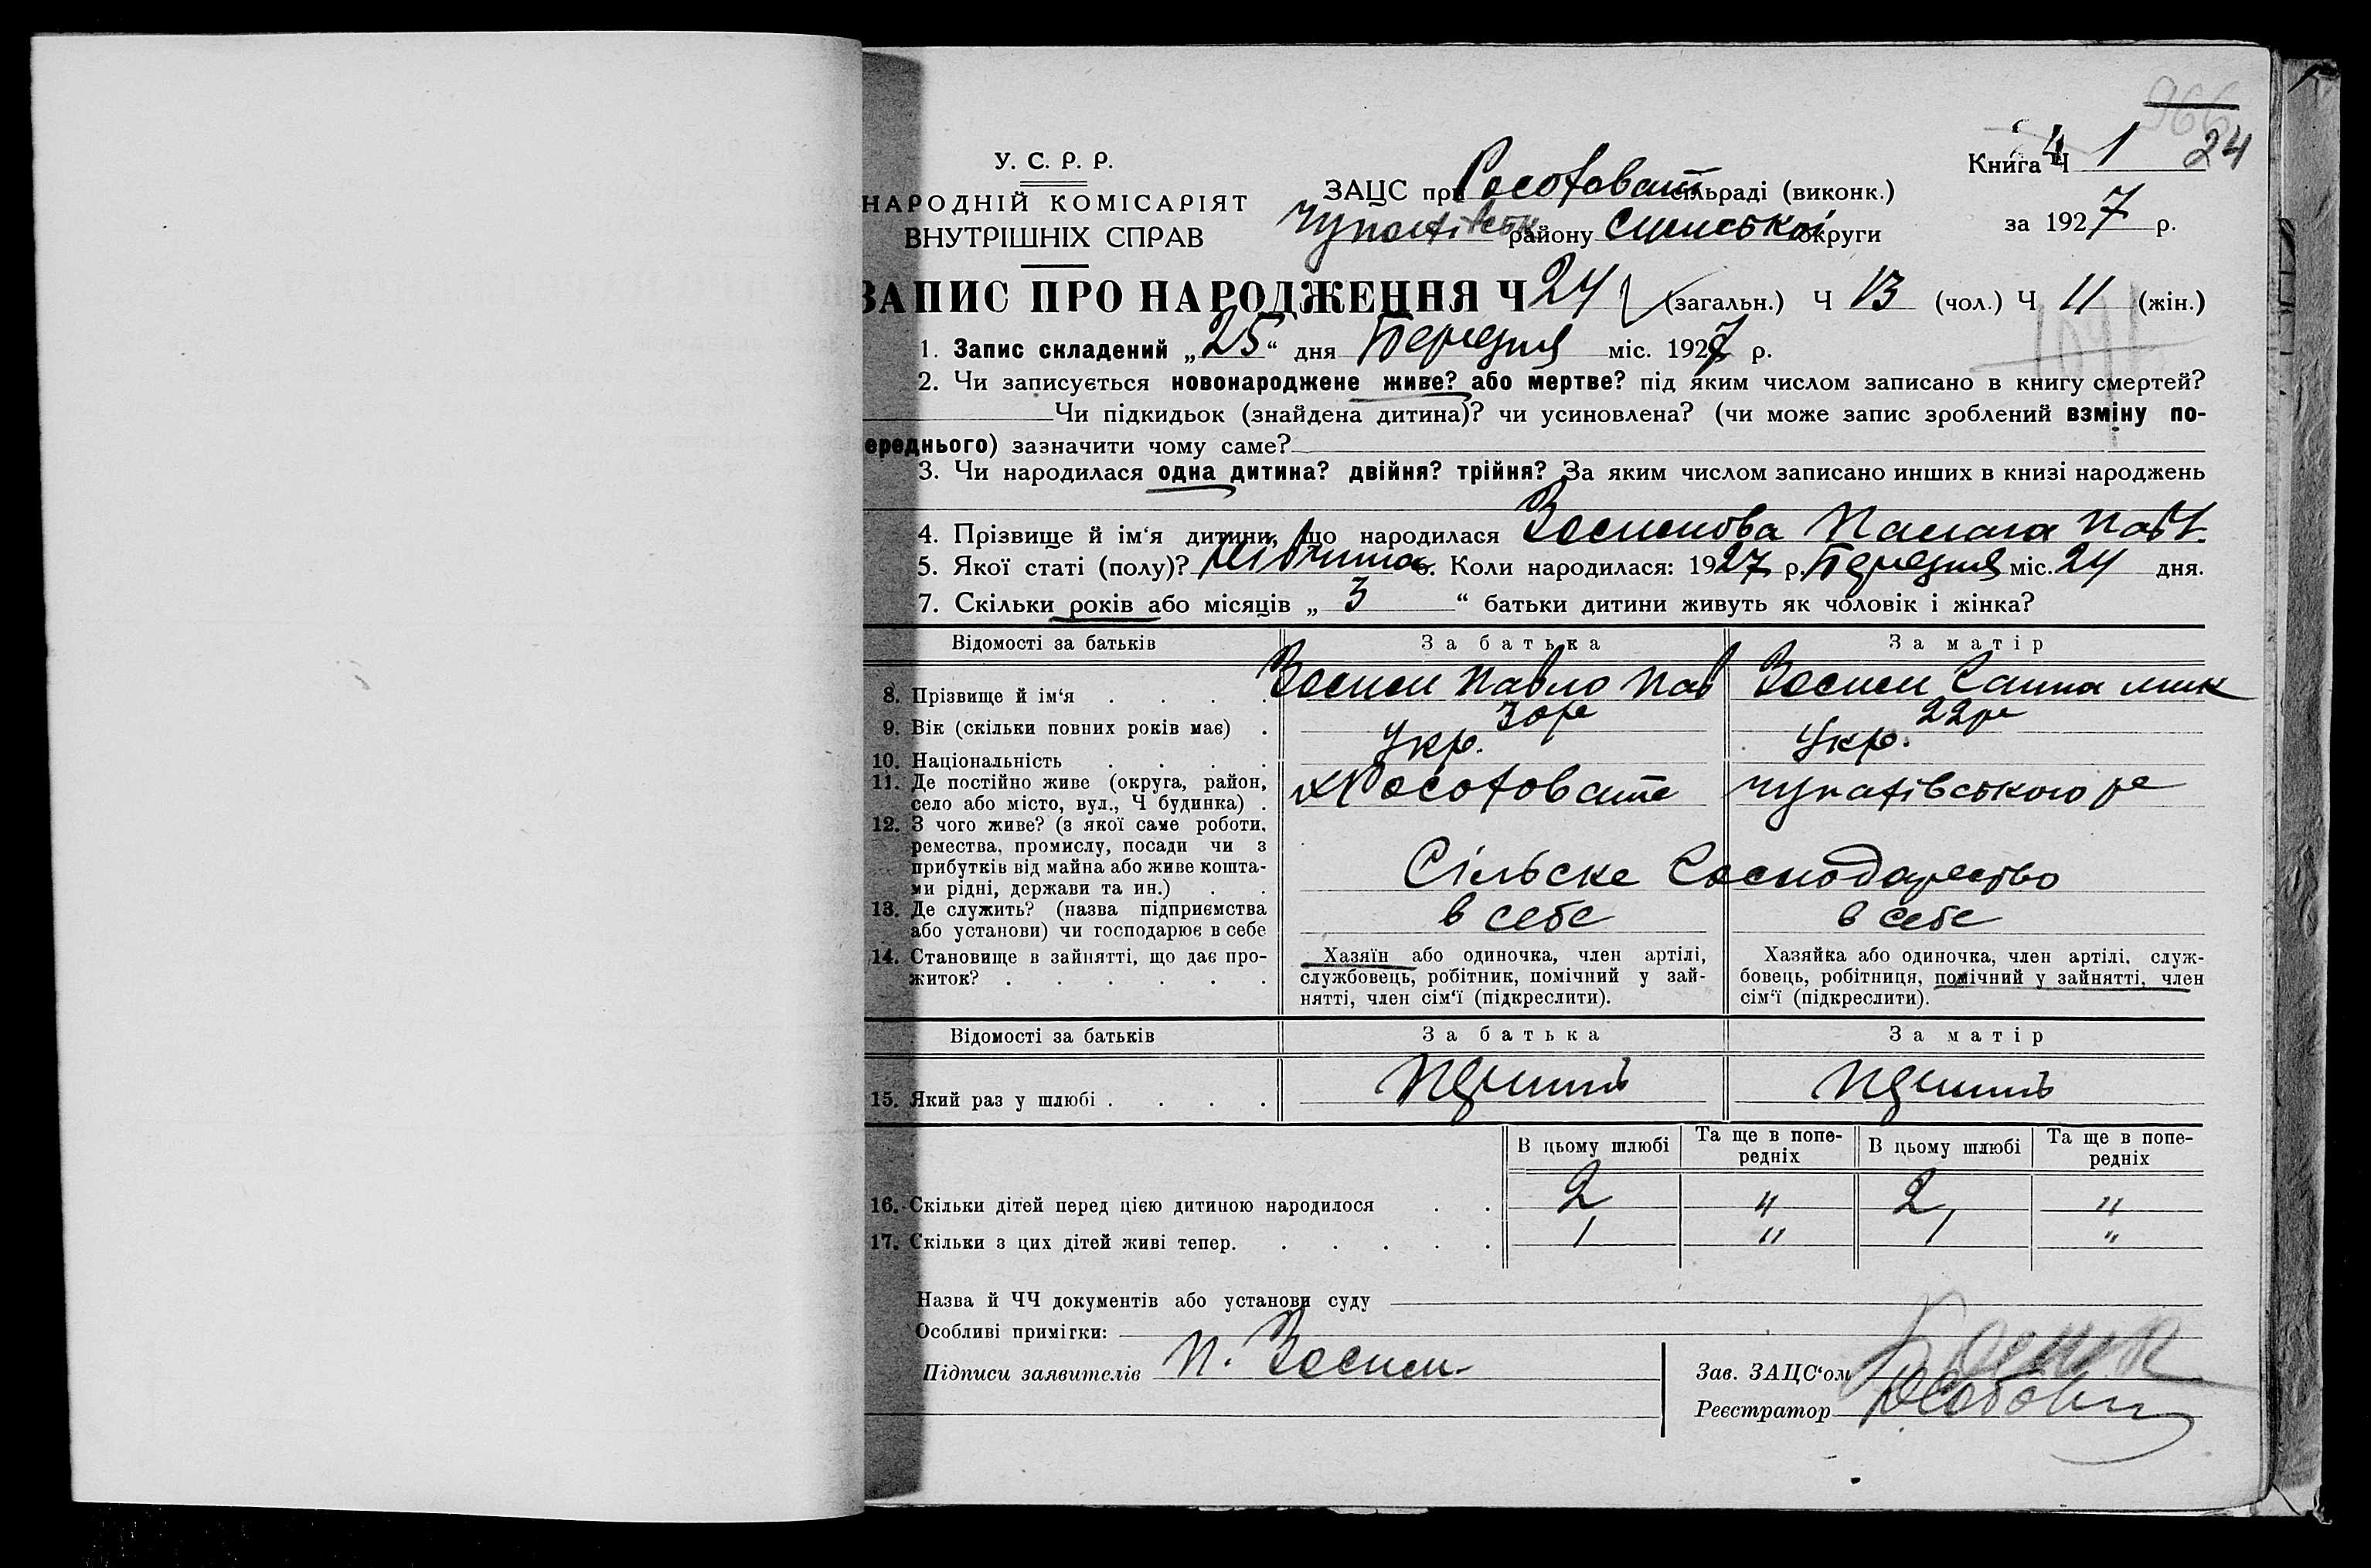 966
Книга Ч 1 24
У. С. Р. Р.
НАРОДНІЙ КОМІСАРІЯТ
ВНУТРІШНІХ СПРАВ
ЗАЦС при сільраді (виконк.)
району Сумської округи
за 1927 р.
ЗАПИС ПРО НАРОДЖЕННЯ Ч 24 (загальн.) Ч 13 (чол.) Ч 11 (жін.)
1. Запис складений „ 25 “ дня Березня міс. 1927 р.
2. Чи записується новонароджене живе? або мертве? під яким числом записано в книгу смертей?
Чи підкидьок (знайдена дитина)? чи усиновлена? (чи може запис зроблений взміну по-
ереднього) зазначити чому саме?
3. Чи народилася одна дитина? двійня? трійня? За яким числом записано инших в книзі народжень
4. Прізвище й ім‘я дитини, що народилася
5. Якої статі (полу)? Дівчина 6. Коли народилася: 1927 р. Березня міс. 24 дня.
7. Скільки років або місяців „ 3 “ батьки дитини живуть як чоловік і жінка?
Відомості за батьків За батька За матір
8. Прізвище й ім‘я . . . . Павло Пав Ганна Мик
9. Вік (скільки повних років має) . 30 р 22 р
10. Національність . . . . Укр. Укр.
11. Де постійно живе (округа, район,
село або місто, вул., Ч будинка) .
12. З чого живе? (з якої саме роботи,
ремества, промислу, посади чи з
прибутків від майна або живе кошта-
ми рідні, держави та ин.) . . Сільске Господарство
13. Де служить? (назва підприємства
або установи) чи господарює в себе в себе в себе
14. Становище в зайнятті, що дає про-
житок? . . . . . .
Хазяїн або одиночка, член артілі,
службовець, робітник, помічний у зай-
нятті, член сім‘ї (підкреслити).
Хазяйка або одиночка, член артілі, служ-
бовець, робітниця, помічний у зайнятті, член
сім‘ї (підкреслити).
Відомості за батьків За батька За матір
15. Який раз у шлюбі . . . .
В цьому шлюбі Та ще в попе-
редніх В цьому шлюбі Та ще в попе-
редніх
16. Скільки дітей перед цією дитиною народилося . . 2 „ 2 „
17. Скільки з цих дітей живі тепер. . . . . . 1 „ 1 „
Назва й ЧЧ документів або установи суду
Особливі примітки:
Підписи заявителів
Зав. ЗАЦС‘ом
Реєстратор